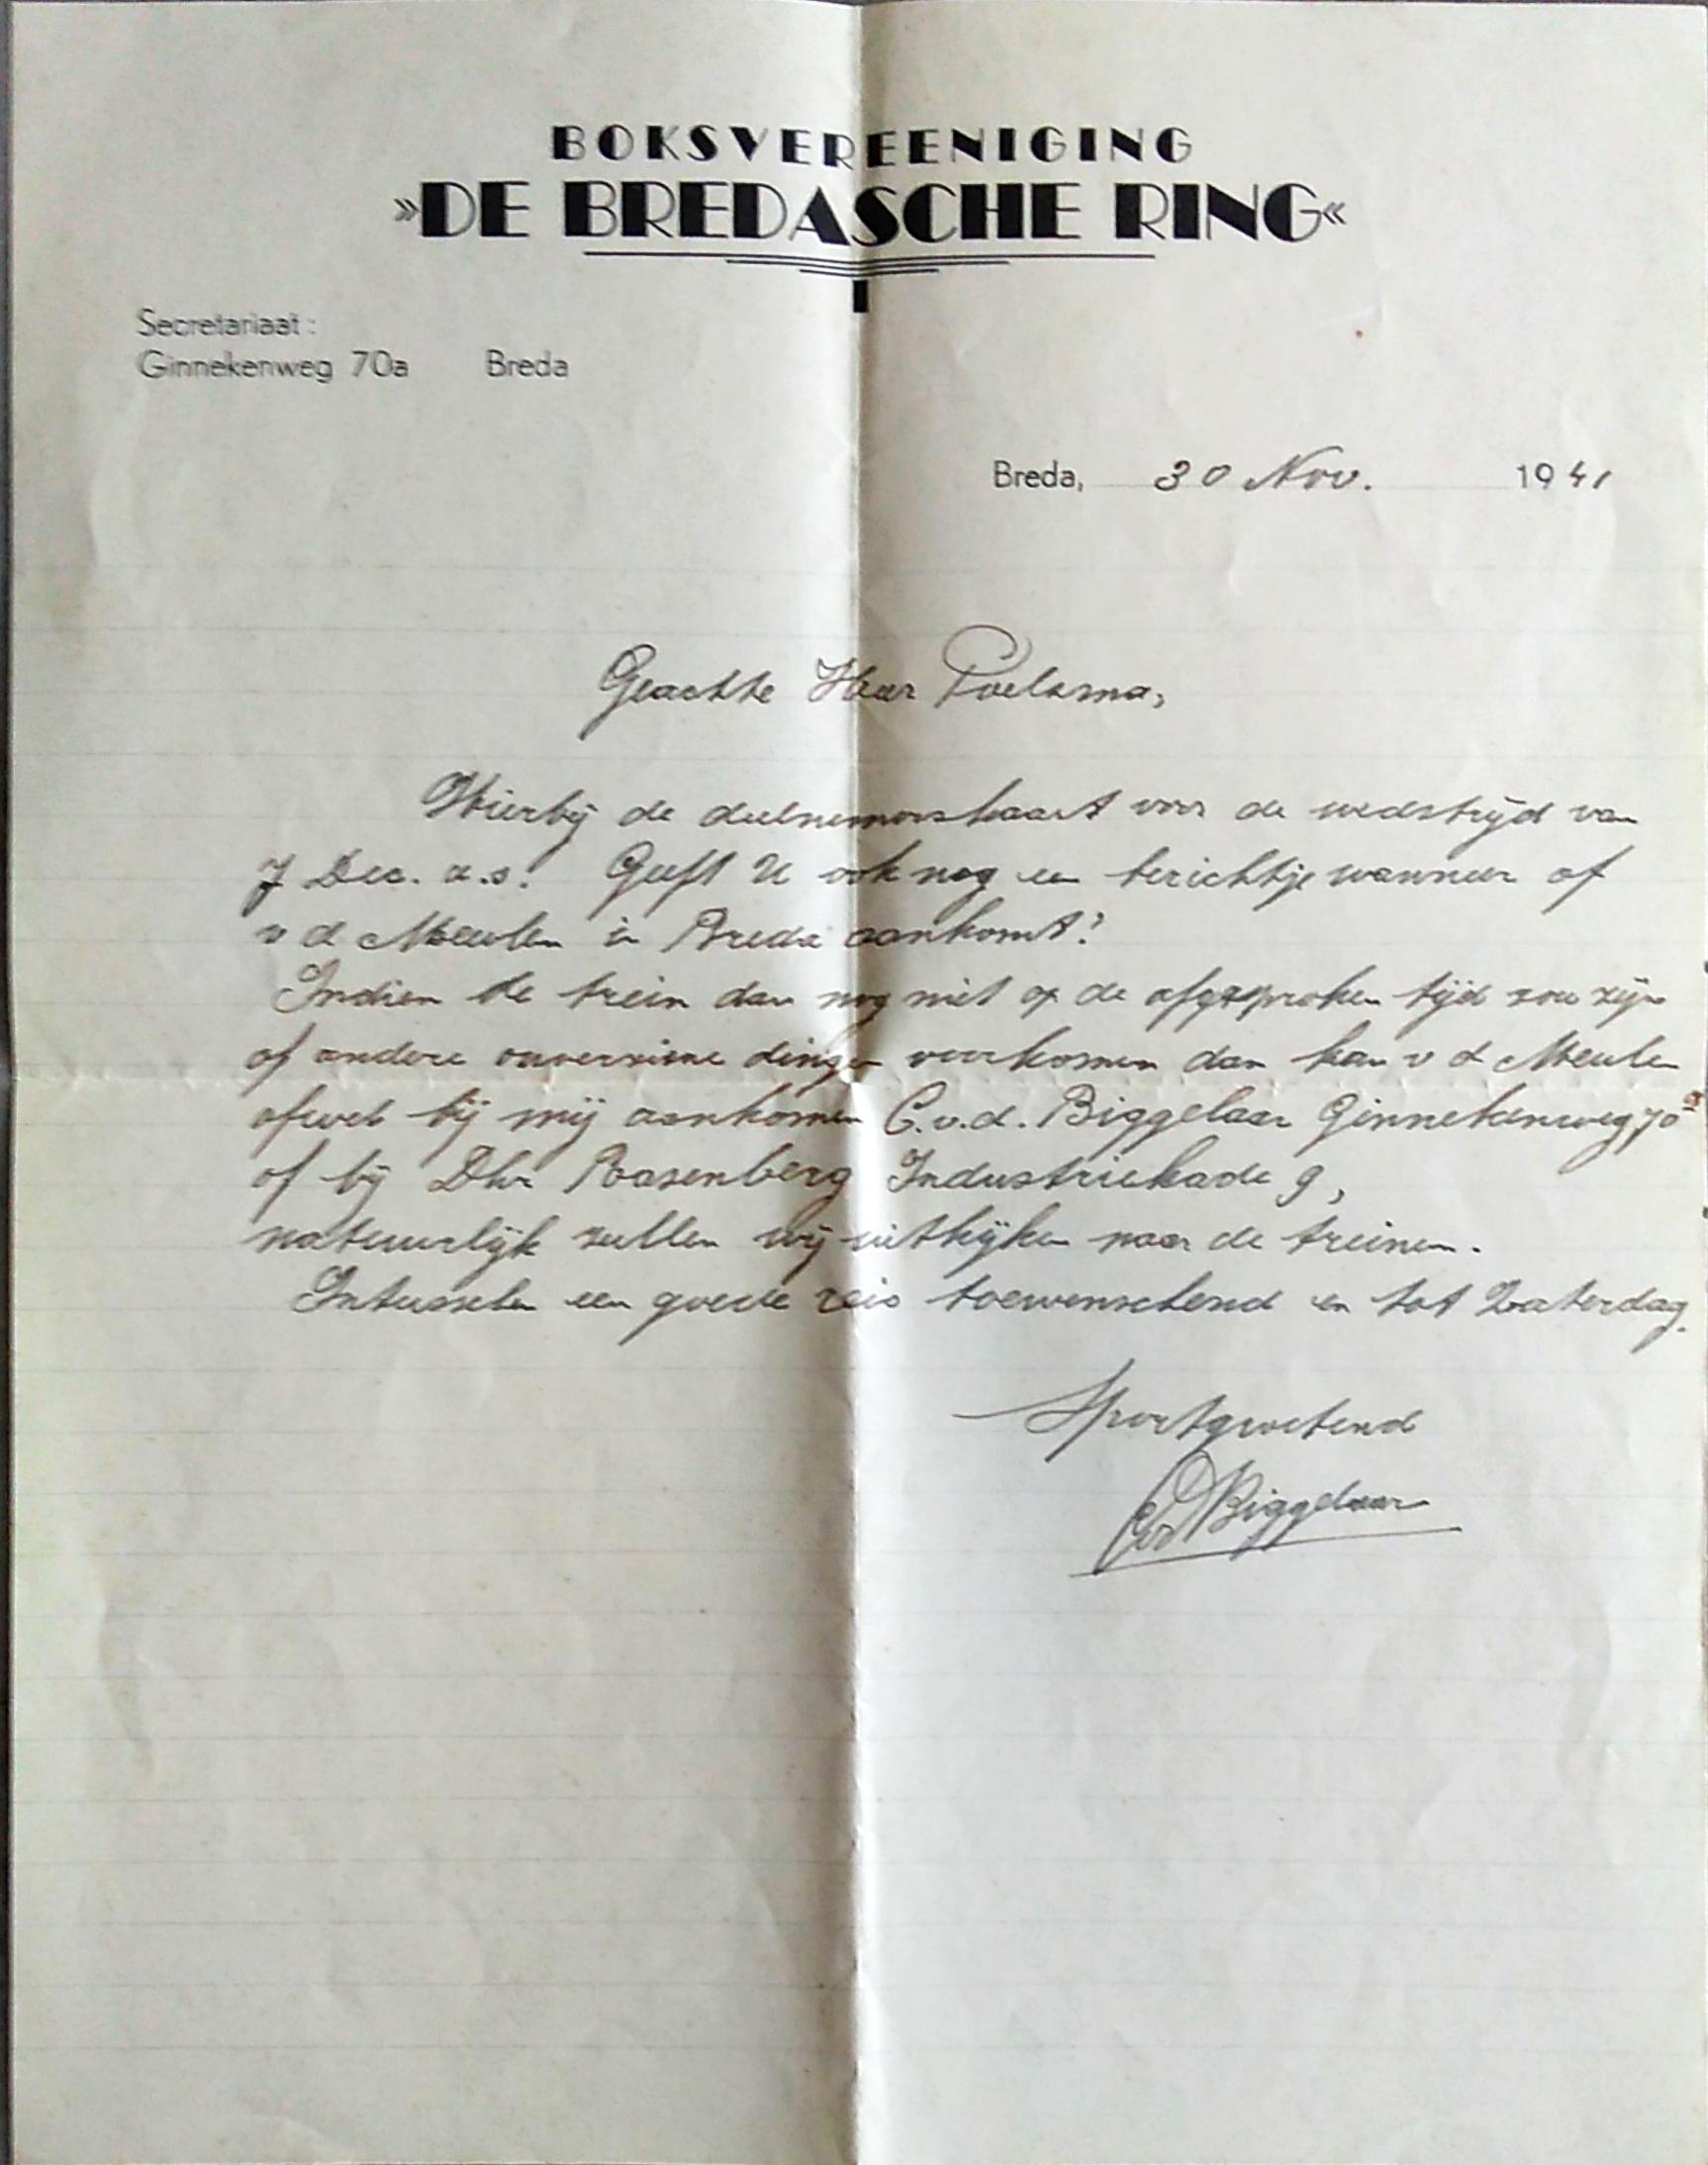 BOKSVEREENIGING
»DE BREDASCHE RING«
Secretariaat:
Ginnekenweg 70a Breda
Breda, 30 Nov. 1941
Geachte Heer Poelsma,
Hierbij de deelnemerskaart voor de wedstrijd van
7 Dec. a.s. Geeft U ook nog een berichtje wanneer of
v d Meulen in Breda aankomt?
Indien de trein dan nog niet op de afgesproken tijd zou zijn
of andere onverziene dingen voorkomen dan kan v d Meulen
ofwel bij mij aankomen C.v.d. Biggelaar Ginnekenweg 70a
of bij Dhr Rasenberg Industriekade 9,
natuurlijk zullen wij uitkijken naar de treinen.
Intusschen een goede reis toewenschend en tot Zaterdag.
Sportgroetend
CvdBiggelaar